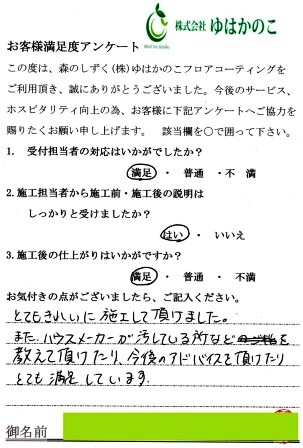 株式会社 ゆはかのこ
お客様満足度アンケート
この度は、森のしずく(株)ゆはかのこフロアコーティングを
ご利用頂き、誠にありがとうございました。今後のサービス、
ホスピタリティ向上の為、お客様に下記アンケートへご協力を
賜りたくお願い申し上げます。 該当欄を〇で囲って下さい。
1. 受付担当者の対応はいかがでしたか?
満足 ・ 普通 ・不 満
2.施工担当者から施工前・施工後の説明は
しっかりと受けましたか?
はい ・ いいえ
3.施工後の仕上がりはいかがですか?
満足 ・ 普通 ・ 不満
お気付きの点がございましたら、ご記入ください。
とてもきれいに施工して頂けました。
また、ハウスメーカーが汚している所など を
教えて頂けたり、今後のアドバイスを頂けたり
とても満足しています。
御名前